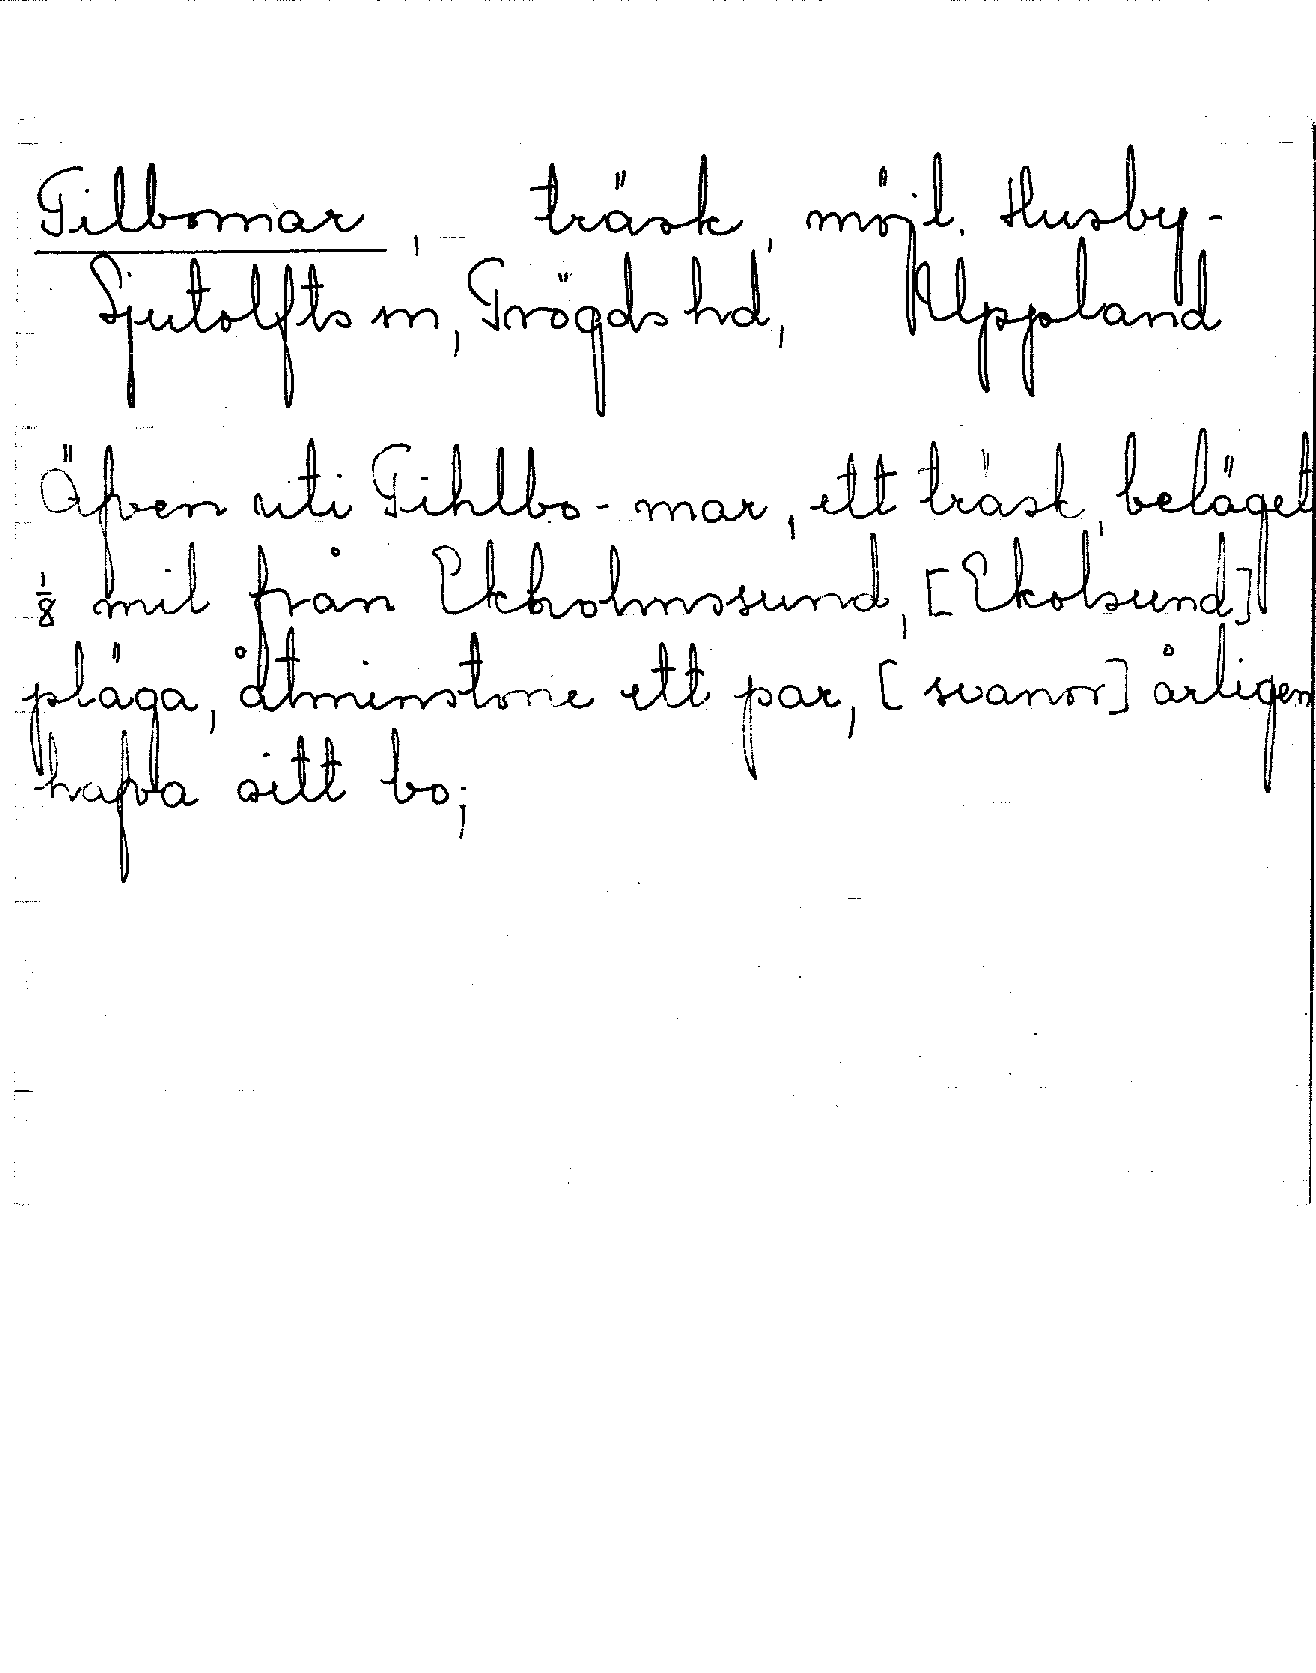 Tilbomar, träsk, möjl. Husby-
Sjutolfts sn, Trögds hd, Uppland
Äfven uti Tihlbo-mar, ett träsk, beläget
1/8 mil från Ekholmssund, [Ekolsund]
pläga, åtminstone ett par, [svanor] årligen
hafva sitt bo;